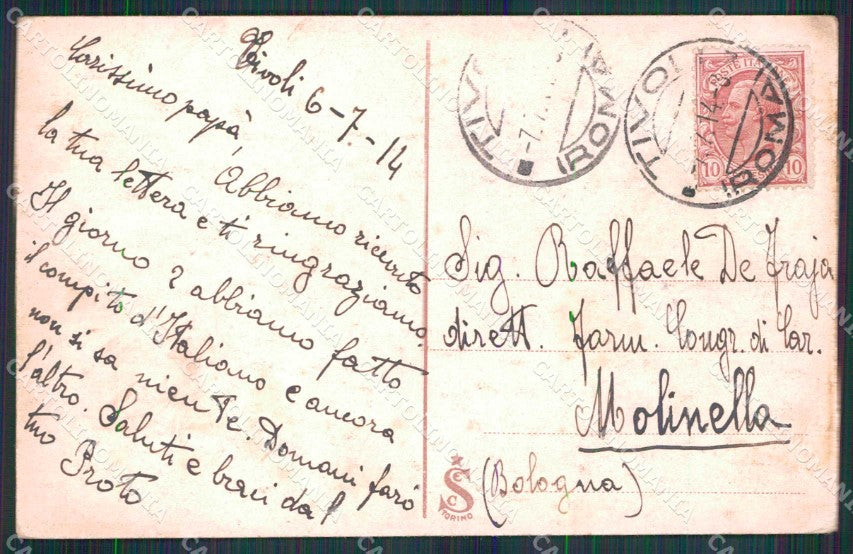 Tivoli 6-7-14
Carissimo papà,
Abbiamo ricevuto
la tua lettera e ti ringraziamo.
Il giorno 2 abbiamo fatto
il compito d'Italiano e ancora
non si sa niente. Domani farò
l'altro. Saluti e baci dal
tuo Proto
TIVOLI (ROMA)
-7.
TIVOLI (ROMA)
7.14
POSTE ITAL
10 10
Sig. Raffaele De Fraja
dirett. Farm. Congr. di Car.
Molinella
(Bologna)
S
TORINO
CARTOLINOMANIA